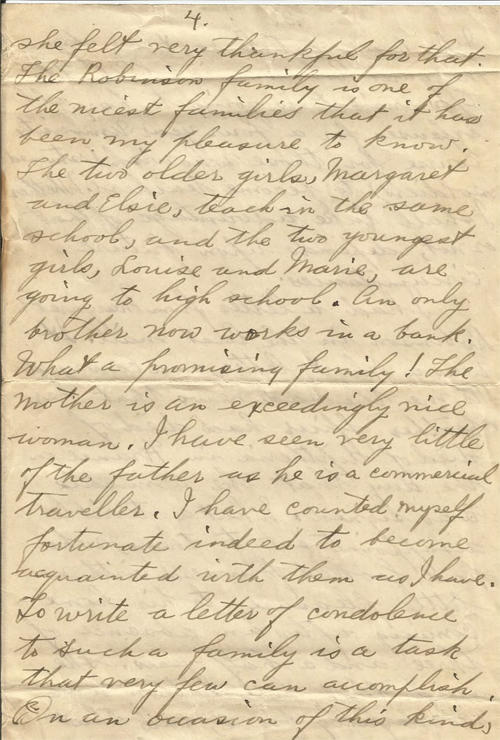 4.
she felt very thankful for that.
The Robinson family is one of
the nicest families that it has
been my pleasure to know.
The two older girls, Margaret
and Elsie, teach in the same
school, and the two youngest
girls, Louise and Marie, are
going to high school. An only
brother now works in a bank.
What a promising family! The
mother is an exceedingly nice
woman. I have seen very little
of the father as he is a commercial
traveller. I have counted myself
fortunate indeed to become
acquainted with them as I have.
To write a letter of condolence
to such a family is a task
that very few can accomplish.
On an occasion of this kind,